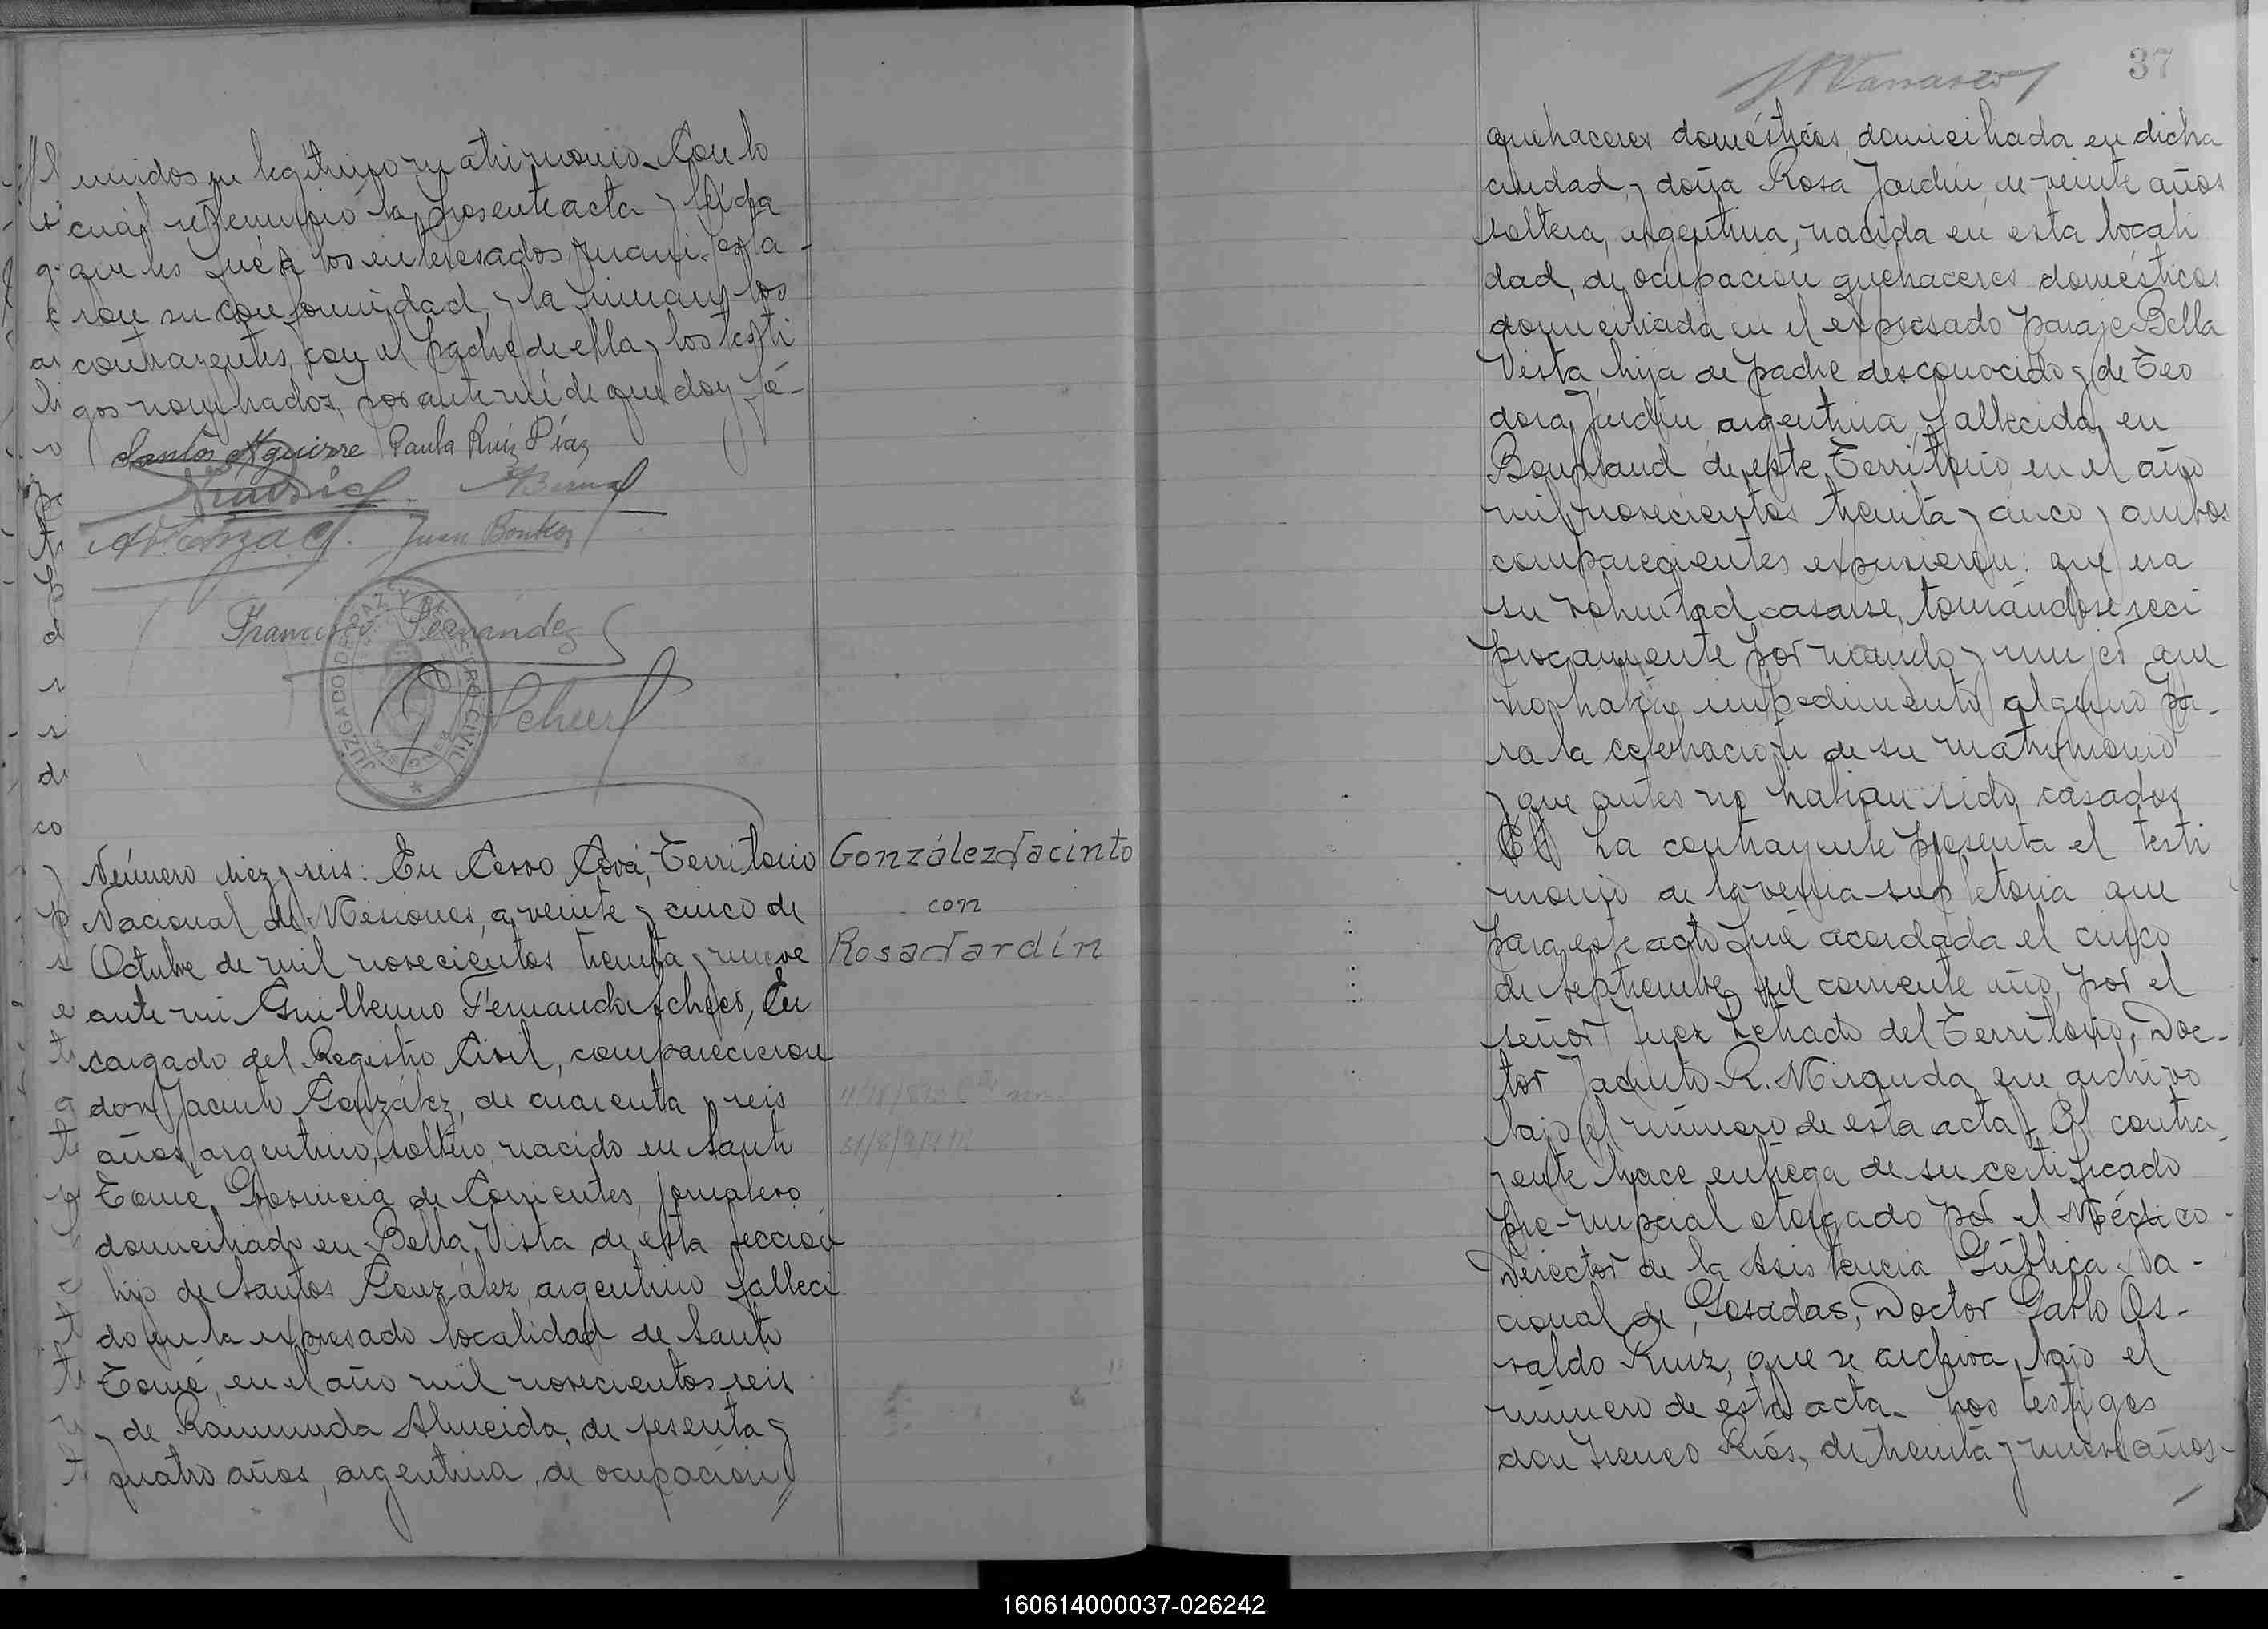 unidos en legítimo matrimonio. Con lo
cuál se terminó la presente acta y leída
que les fué a los interesados, manifesta-
ron su conformidad, y la firman los
contrayentes, con el padre de ella y los testi
gos nombrados, por ante mí de que doy fé-
Santos Aguirre Paula Ruiz Díaz
Juan
Francisco Fernández
JUZGADO DE PAZ Y DE REGISTRO CIVIL
Scheer
Número diez y seis: En Cerro Corá, Territorio
Nacional de Misiones, a veinte y cinco de
Octubre de mil novecientos treinta y nueve
ante mi Guillermo Fernando Scheer, En
cargado del Registro Civil, comparecieron
don Jacinto González, de cuarenta y seis
años, argentino, soltero, nacido en Santo
Tomé, Provincia de Corrientes, jornalero
domiciliado en Bella Vista de esta sección
hijo de Santos González, argentino falleci
do en la expresado localidad de Santo
Tomé, en el año mil novecientos seis
y de Raimunda Almeida, de sesenta y
cuatro años, argentina, de ocupación
González Jacinto
con
Rosa Jardín
37
quehaceres domésticos, domiciliada en dicha
ciudad, y doña Rosa Jardín, de veinte años
soltera, argentina, nacida en esta locali
dad, de ocupación quehaceres domésticos
domiciliada en el expresado paraje Bella
Vista, hija de padre desconocido y de Teo
dora Jardín, argentina, fallecida en
Bompland de este Territorio, en el año
mil novecientos treinta y cinco y ambos
comparecientes expusieron: que era
su voluntad casarse, tomándose reci
procamente por marido y mujer que
no había impedimento alguno pa-
ra la celebración de su matrimonio
y que antes no habían sido casados
La contrayente presenta el testi
monio de la venia supletoria que
para este acto fué acordada el cinco
de septiembre del corriente año, por el
señor Juez Letrado del Territorio, Doc-
tor Jacinto R. Miranda que archivo
bajo el número de esta acta. El contra-
yente hace entrega de su certificado
pre-nupcial otorgado por el Médico
Director de la Asistencia Pública Na-
cional de Posadas, Doctor Pablo Os-
valdo Ruiz, que se archiva, bajo el
número de ésta acta. Los testigos
don Ireneo Ríos, de treinta y nueve años-
160614000037-026242